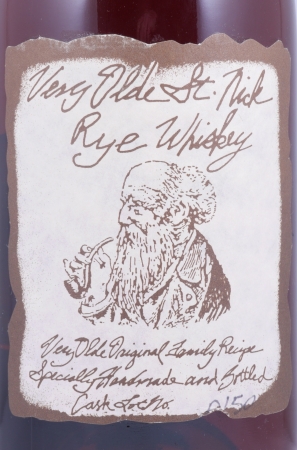 Very Olde St. Nick
Rye Whiskey
Very Olde Original Family Recipe
Specially Handmade and Bottled
Cask Lot No.